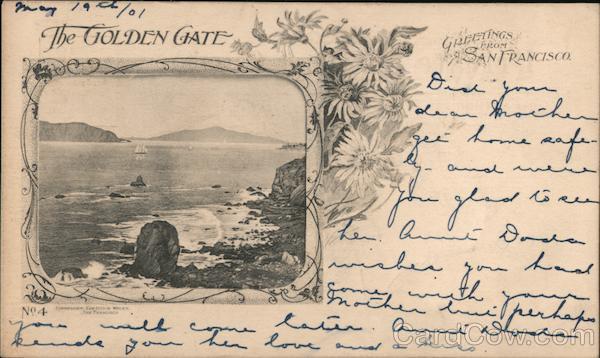 May 19th/01
The GOLDEN GATE
GREETINGS
FROM
SAN FRANCISCO.
Did your
dear Mother
get home safe-
ly and were
you glad to see
her. Aunt Doda
wishes you had
come with your
Mother but perhaps
you will come later. Aunt Doda
sends you her love and a
No 4
SAN FRANCISCO
CardCow.com